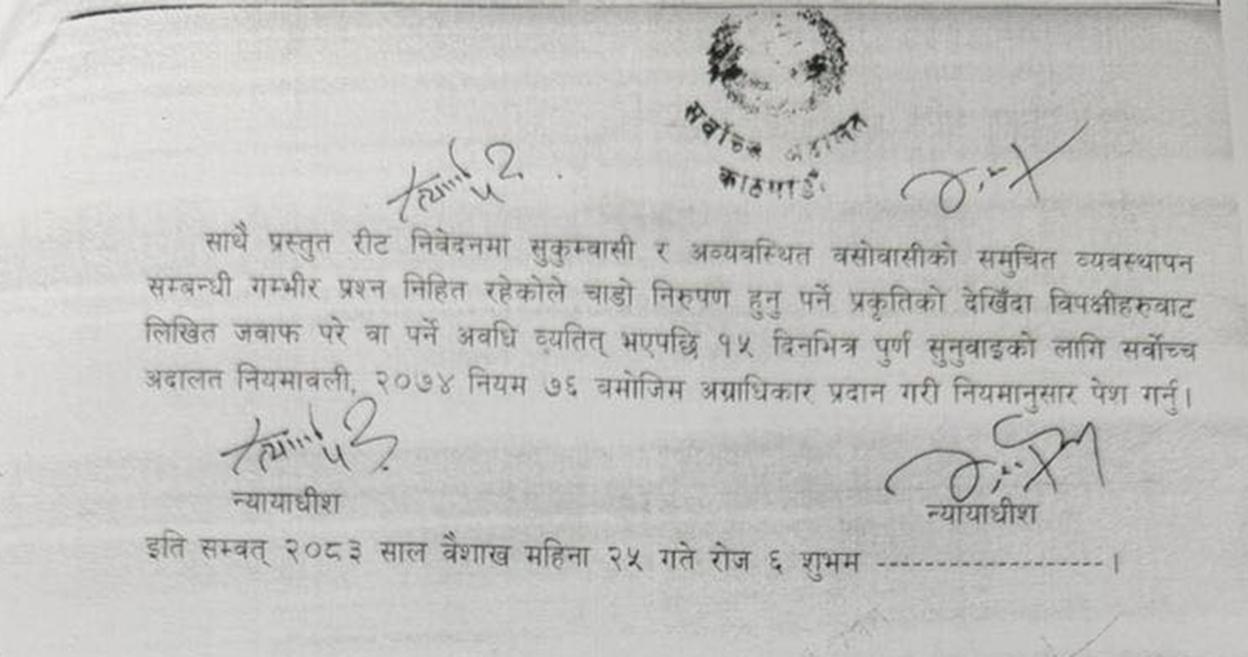 सर्वोच्च अदालत
काठमाडौं
साथै प्रस्तुत रीट निवेदनमा सुकुम्वासी र अव्यवस्थित वसोवासीको समुचित व्यवस्थापन
सम्बन्धी गम्भीर प्रश्न निहित रहेकोले चाडो निरुपण हुनु पर्ने प्रकृतिको देखिँदा विपक्षीहरुवाट
लिखित जवाफ परे वा पर्ने अवधि व्यतित् भएपछि १५ दिनभित्र पुर्ण सुनुवाइको लागि सर्वोच्च
अदालत नियमावली, २०७४ नियम ७६ वमोजिम अग्राधिकार प्रदान गरी नियमानुसार पेश गर्नु।
न्यायाधीश न्यायाधीश
इति सम्वत् २०८३ साल वैशाख महिना २५ गते रोज ६ शुभम -------------------।